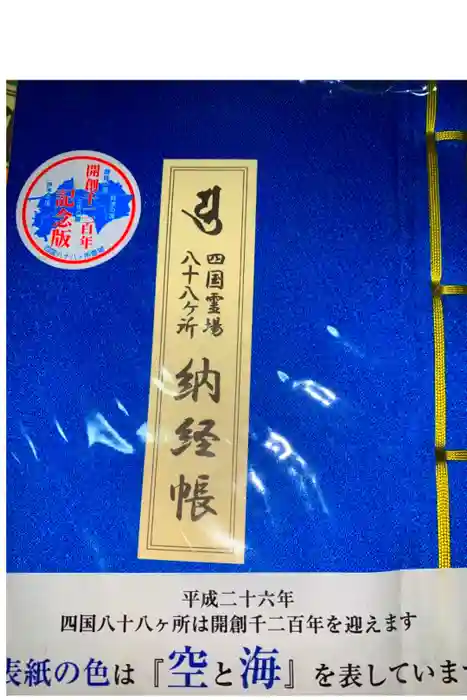 開創千二百年
記念版
四国八十八ヶ所霊場
四国霊場
八十八ヶ所
納経帳
平成二十六年
四国八十八ヶ所は開創千二百年を迎えます
表紙の色は『空と海』を表しています